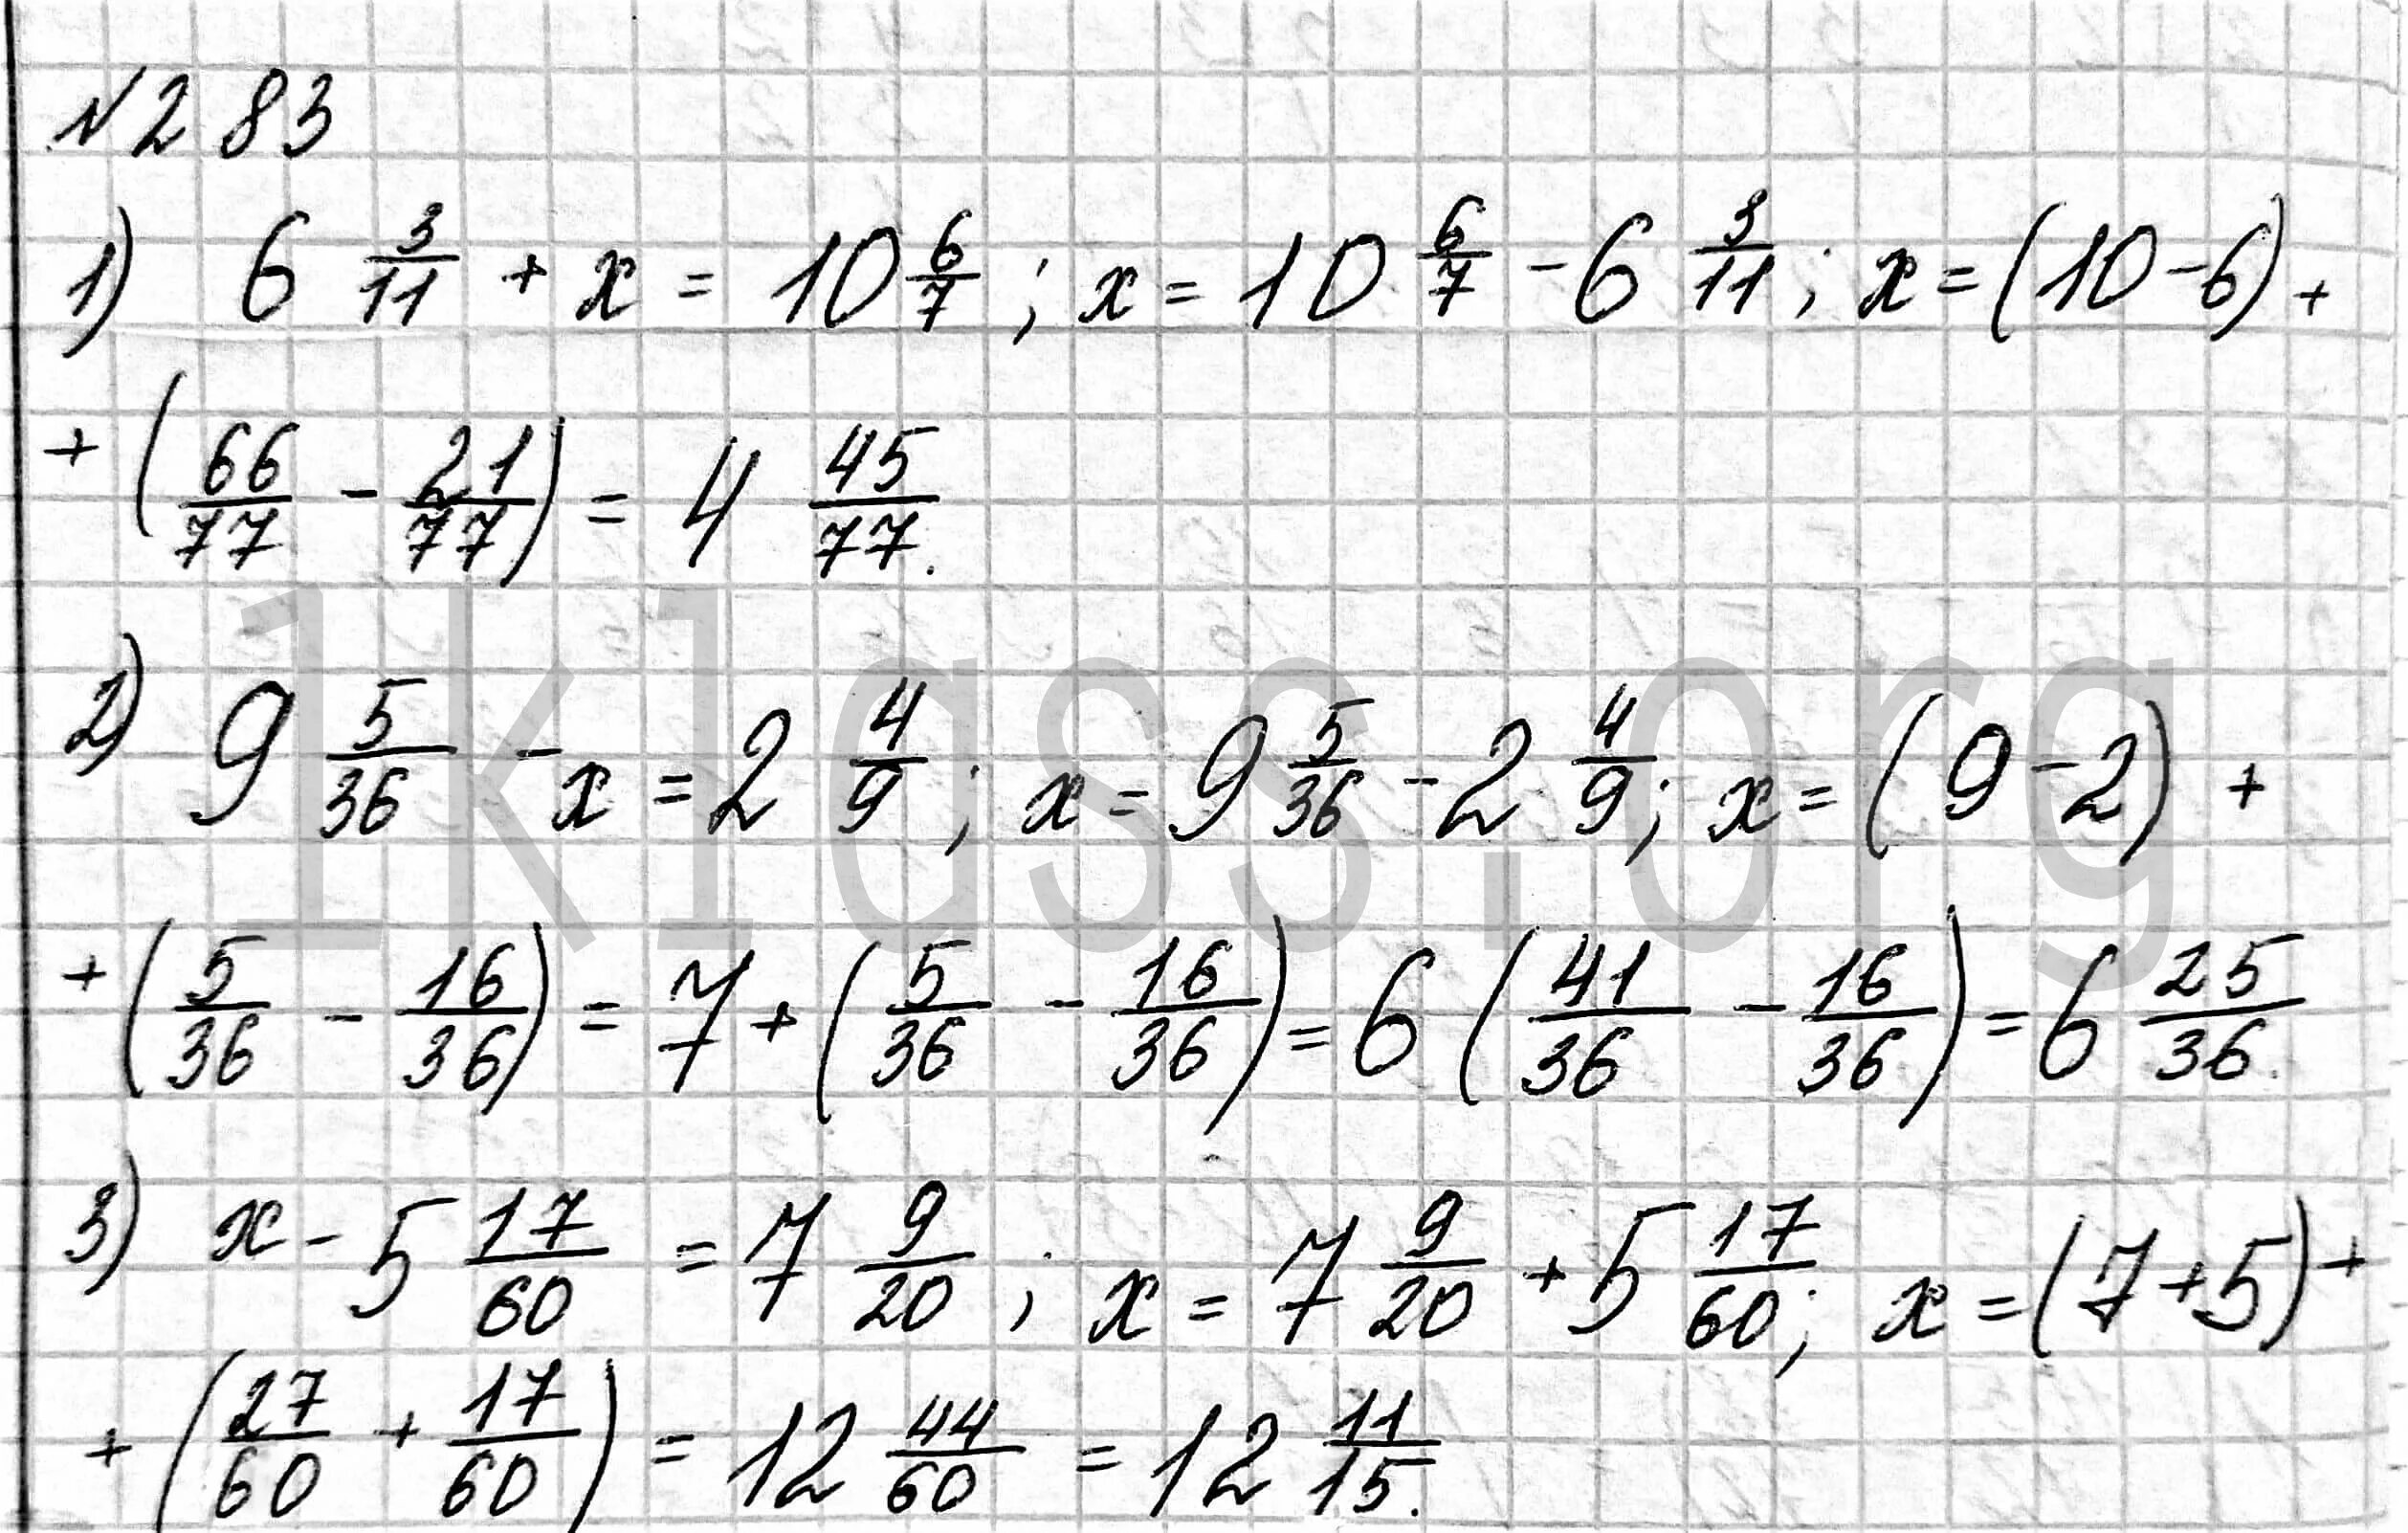 №283
1) 6 3/11 + x = 10 6/7 ; x = 10 6/7 - 6 3/11 ; x = (10 - 6) +
+ (66/77 - 21/77) = 4 45/77.
2) 9 5/36 - x = 2 4/9 ; x = 9 5/36 - 2 4/9 ; x = (9 - 2) +
1klass.org
+ (5/36 - 16/36) = 7 + (5/36 - 16/36) = 6 (41/36 - 16/36) = 6 25/36.
3) x - 5 17/60 = 7 9/20 ; x = 7 9/20 + 5 17/60 ; x = (7 + 5) +
+ (27/60 + 17/60) = 12 44/60 = 12 11/15.